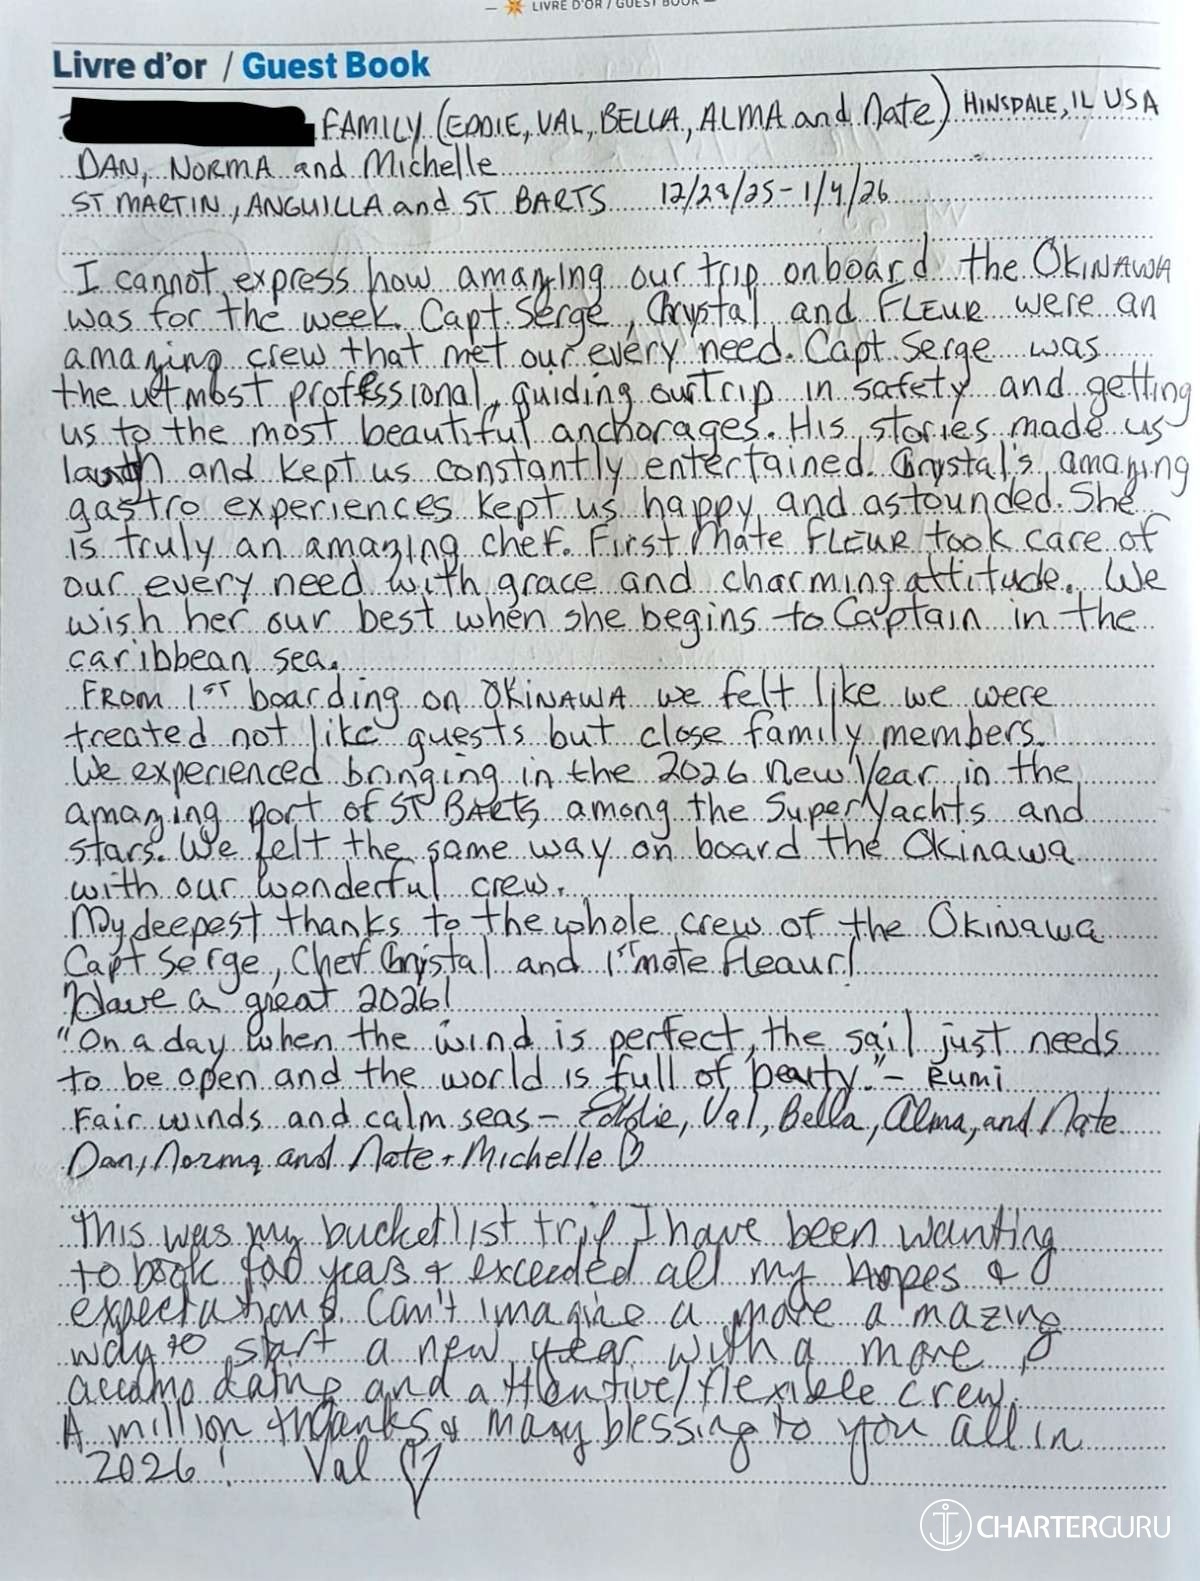 — LIVRE D'OR / GUEST BOOK —
Livre d'or / Guest Book
FAMILY (EDDIE, VAL, BELLA, ALMA and Nate) HINSDALE, IL USA
DAN, NORMA and Michelle
ST MARTIN, ANGUILLA and ST BARTS 12/28/25 - 1/4/26
I cannot express how amazing our trip onboard the OKINAWA
was for the week. Capt. Serge, Chrystal and FLEUR were an
amazing crew that met our every need. Capt Serge was
the utmost professional, guiding our Trip in safety and getting
us to the most beautiful anchorages. His stories made us
and kept us constantly entertained. Crystal's amazing
gastro experiences kept us happy and astounded. She
is truly an amazing chef. First Mate FLEUR took care of
our every need with grace and charming attitude. We
wish her our best when she begins to Captain in the
caribbean sea.
FROM 1ST boarding on OKINAWA we felt like we were
treated not like guests but close family members.
We experienced bringing in the 2026 New Year in the
amazing port of ST BARTS among the Super Yachts and
stars. We felt the same way on board the Okinawa
with our wonderful crew.
My deepest thanks to the whole crew of the OKINAWA
Capt Serge, Chef Crystal and 1st mate Fleaur!
Have a great 2026!
"On a day when the wind is perfect, the sail just needs
to be open and the world is full of beauty." - Rumi
Fair winds and calm seas - Eddie, Val, Bella, Alma, and Nate
Dan, Norma and Nate + Michelle ♡
This was my bucket list trip I have been wanting
to book for years & exceeded all my hopes &
expectations. Can't imagine a more amazing
way to start a new year with a more
accomodating and attentive/flexible crew.
A million thanks & many blessing to you all in
2026! Val ♡
CHARTERGURU